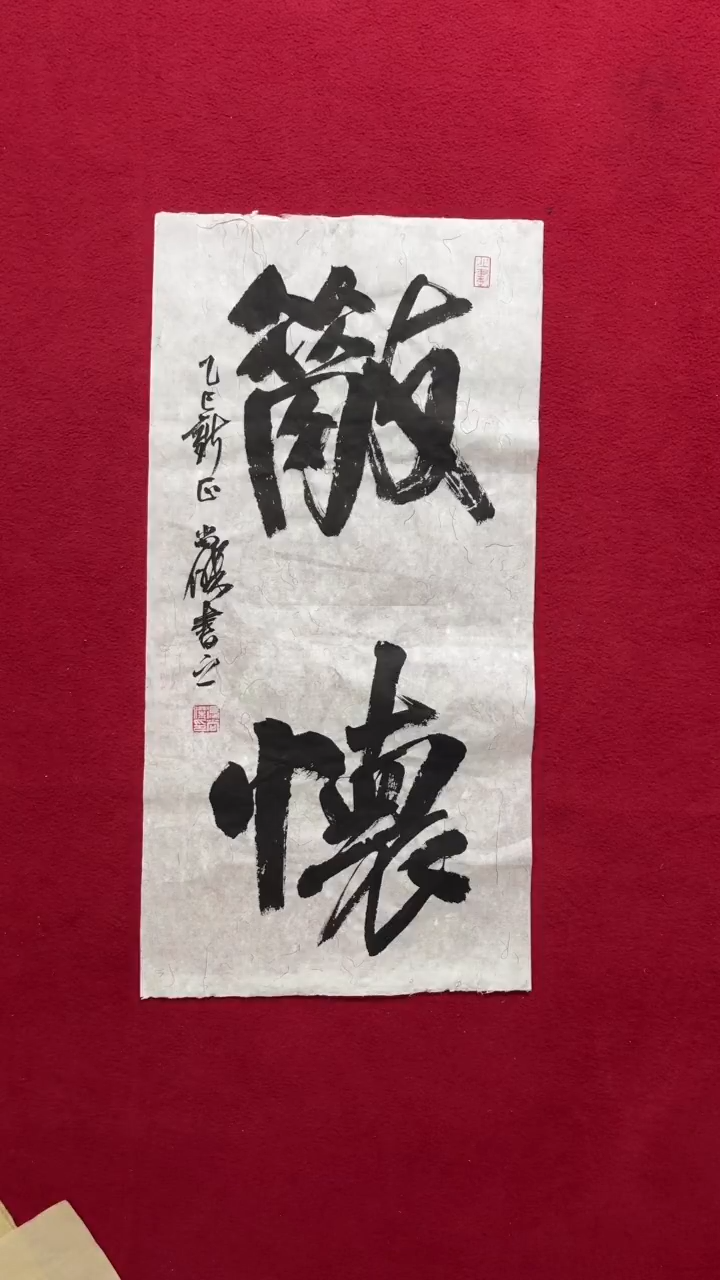 敞懷
乙巳新正 尚 書之